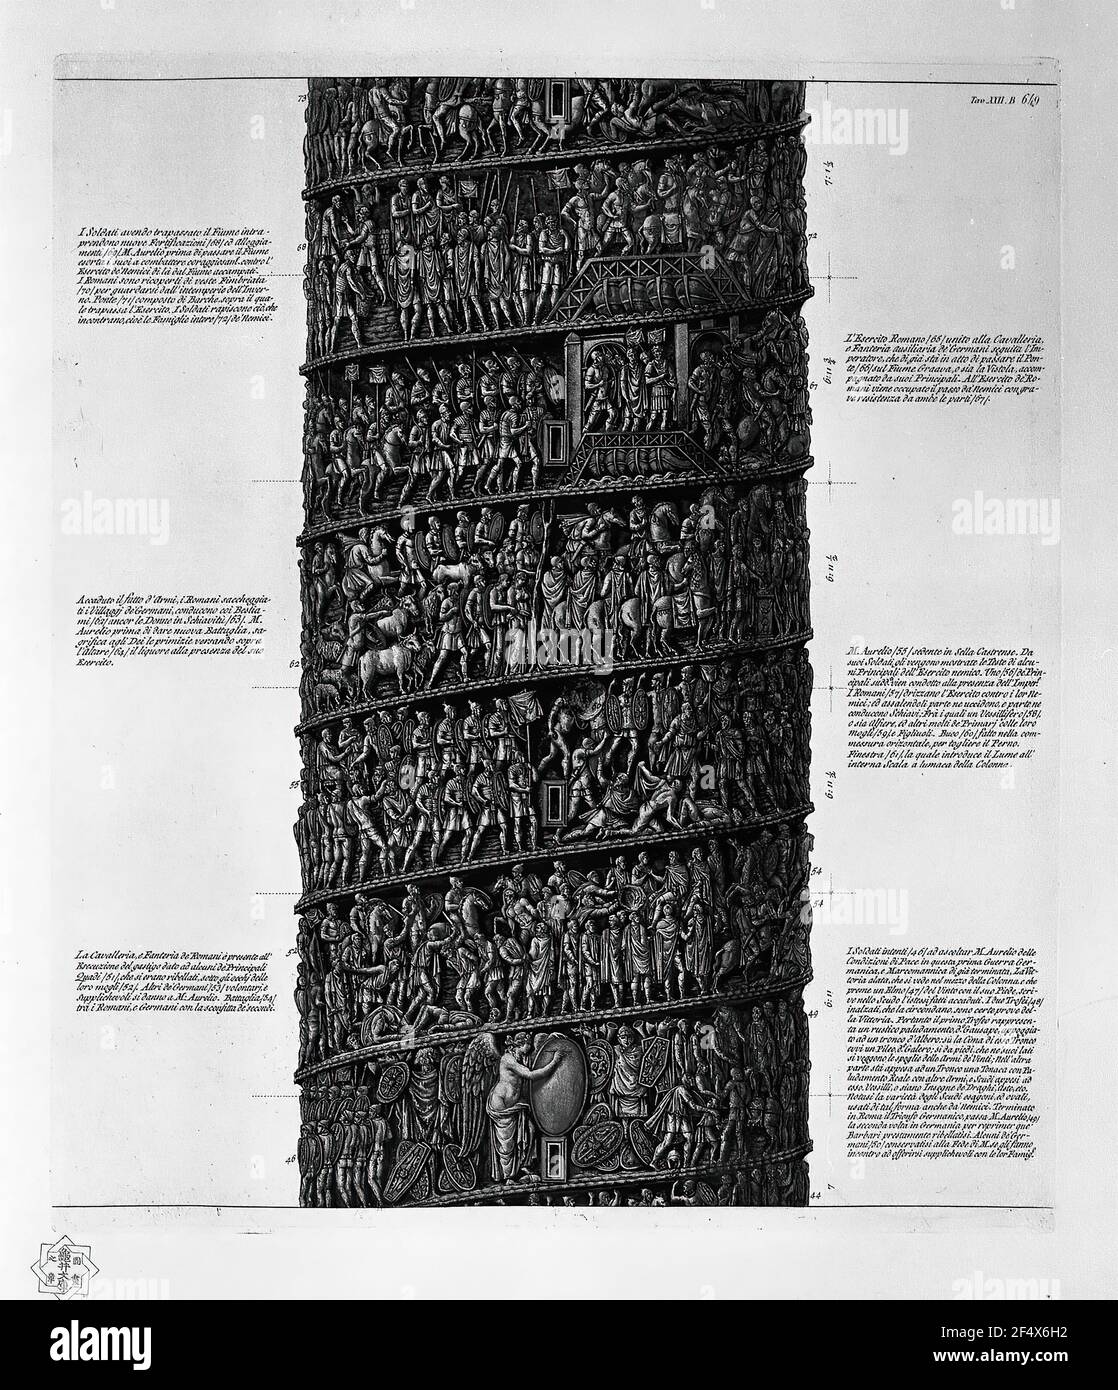 Tav. XXII. B 649
73
I Soldati avendo trapassato il Fiume intra-
prendono nuove Fortificazioni /68/ ed alloggia-
menti /69/. M. Aurelio prima di passare il Fiume
esorta i suoi a combattere coraggiosam. contro l'
Esercito de' Nemici di là dal Fiume accampati.
I Romani sono ricoperti di veste Fimbriata
/70/ per guardarsi dall' intemperie dell' Inver-
no. Ponte /71/ composto di Barche, sopra il qua-
le trapassa l'Esercito. I Soldati rapiscono ciò, che
incontrano, cioè le Famiglie intere /72/ de' Nemici.
68
72
L'Esercito Romano /65/ unito alla Cavalleria,
e Fanteria ausiliaria de' Germani seguita l'Im-
peratore, che di già sta in atto di passare il Pon-
te /66/ sul Fiume Graava, o sia la Vistola, accom-
pagnato da suoi Principali. All' Esercito de' Ro-
mani viene occupato il passo da' Nemici con gra-
ve resistenza da ambe le parti /67/.
67
11:9
Accaduto il fatto d'Armi, i Romani saccheggia-
ti i Villaggi de' Germani, conducono coi Bestia-
mi /62/ ancor le Donne in Schiavitù /63/. M.
Aurelio prima di dare nuova Battaglia, sa-
grifica agli Dei le primizie versando sopra
l'Altare /64/ il liquore alla presenza del suo
Esercito.
62
11:9
M. Aurelio /55/ sedente in Sella Castrense. Da
suoi Soldati gli vengono mostrate le Teste di alcu-
ni Principali dell' Esercito nemico. Uno /56/ de' Prin-
cipali sud. vien condotto alla presenza dell' Imper.
I Romani /57/ drizzano l'Esercito contro i lor Ne-
mici: ed assalendoli parte ne uccidono, e parte ne
conducono Schiavi: Frà i quali un Vessillifero /58/,
o sia Alfiere, ed altri molti de' Primarj colle loro
mogli /59/, e Figliuoli. Buco /60/ fatto nella com-
messura orizontale, per togliere il Perno.
Finestra /61/, la quale introduce il Lume all'
interna Scala a lumaca della Colonna.
55
11:9
54
54
La Cavalleria, e Fanteria de' Romani è presente all'
Esecuzione del gastigo dato ad alcuni de' Principali
Quadi /51/, che si erano ribellati, sotto gli occhj delle
loro mogli /52/. Altri de' Germani /53/ volontarj, e
Supplichevoli si danno a M. Aurelio. Battaglia /54/
trà i Romani, e Germani con la sconfitta de' secondi.
52
11:9
49
I Soldati intenti /46/ ad ascoltar M. Aurelio delle
Condizioni di Pace in questa prima Guerra Ger-
manica, e Marcomannica di già terminata. La Vit-
toria alata, che si vede nel mezzo della Colonna, e che
preme un Elmo /47/ del Vinto con il suo Piede, scri-
ve nello Scudo l'istessi fatti accaduti. I due Trofei /48/
inalzati, che la circondano, sono certe prove del-
la Vittoria. Pertanto il primo Trofeo rappresen-
ta un rustico paludamento, d. Gausape, appoggia-
to ad un tronco d'Albero: sù la Cima di esso Tronco
evvi un Pileo, d. Galero; si da piedi, che ne' suoi lati
si veggono le spoglie delle Armi de' Vinti; Nell' altra
parte stà appesa ad un Tronco una Tonaca con Pa-
ludamento Reale con altre Armi, e Scudi appesi ad
esso, Vessilli, o siano Insegne de' Draghi, Aste, etc.
Notasi la varietà degli Scudi esagoni, ed ovali,
usati di tal forma anche da' Nemici. Terminato
in Roma il Trionfo Germanico, passa M. Aurelio /49/
la seconda volta in Germania per reprimer que'
Barbari prestamente ribellatisi. Alcuni de' Ger-
mani /50/ conservatisi alla Fede di M. se gli fanno
incontro ad offrirsi supplichevoli con le lor Famig.
46
44
alamy
Image ID: 2F4X6H2
www.alamy.com